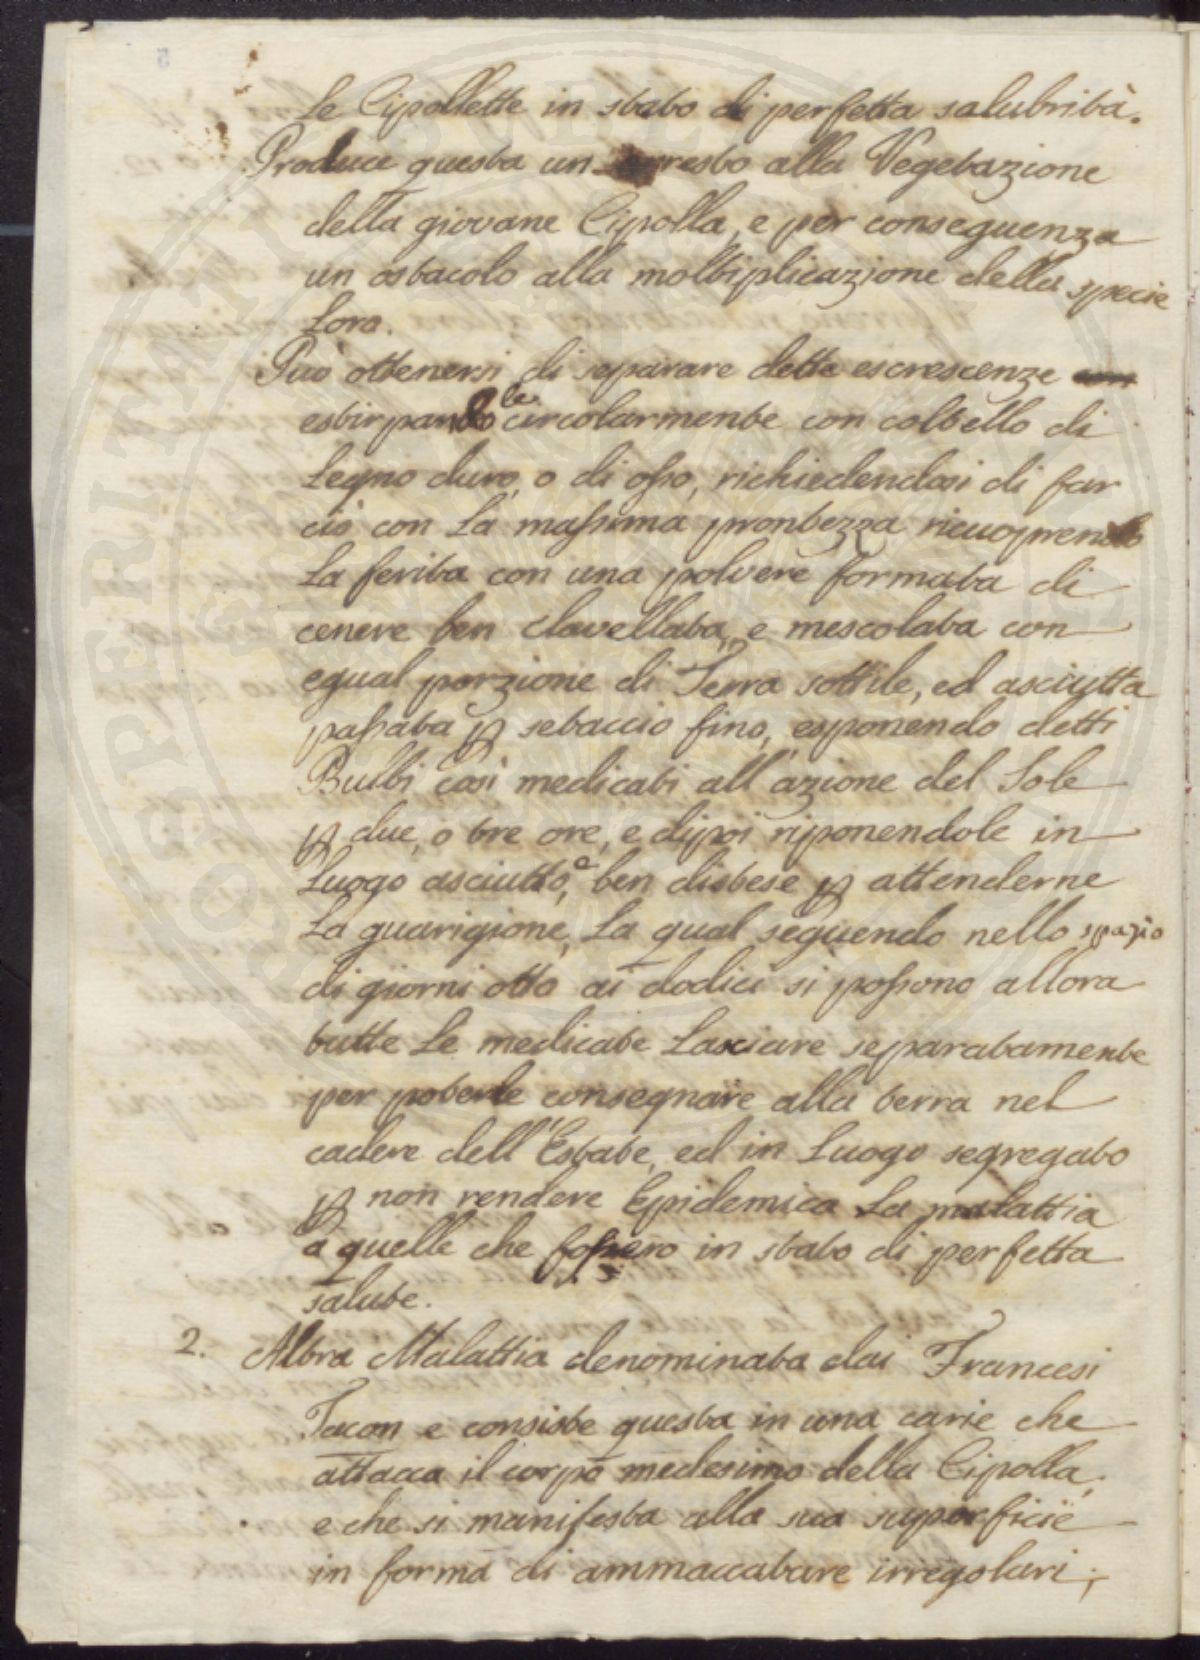 le Cipollette in stato di perfetta salubrità.
Produce questa un arresto alla Vegetazione
della giovane Cipolla, e per conseguenza
un ostacolo alla moltiplicazione della specie
loro.
Può ottenersi di separare dette escrescenze
estirpandole circolarmente con coltello di
legno duro, o di osso, richiedendosi di far
ciò con la massima prontezza ricuoprendo
la ferita con una polvere formata di
cenere ben clavellata, e mescolata con
egual porzione di Terra sottile, ed asciutta
passata p setaccio fino, esponendo detti
Bulbi così medicati all'azione del Sole
p due, o tre ore, e dipoi riponendole in
luogo asciutto, e ben distese p attenderne
la guarigione, la qual seguendo nello spazio
di giorni otto ai dodici si possono allora
tutte le medicate lasciare separatamente
per poterle consegnare alla terra nel
cadere dell'Estate, ed in luogo segregato
p non rendere Epidemica la malattia
a quelle che fossero in stato di perfetta
salute.
2. Altra Malattia denominata dai Francesi
Tacon e consiste questa in una carie che
attacca il corpo medesimo della Cipolla,
e che si manifesta alla sua superficie
in forma di ammaccature irregolari;